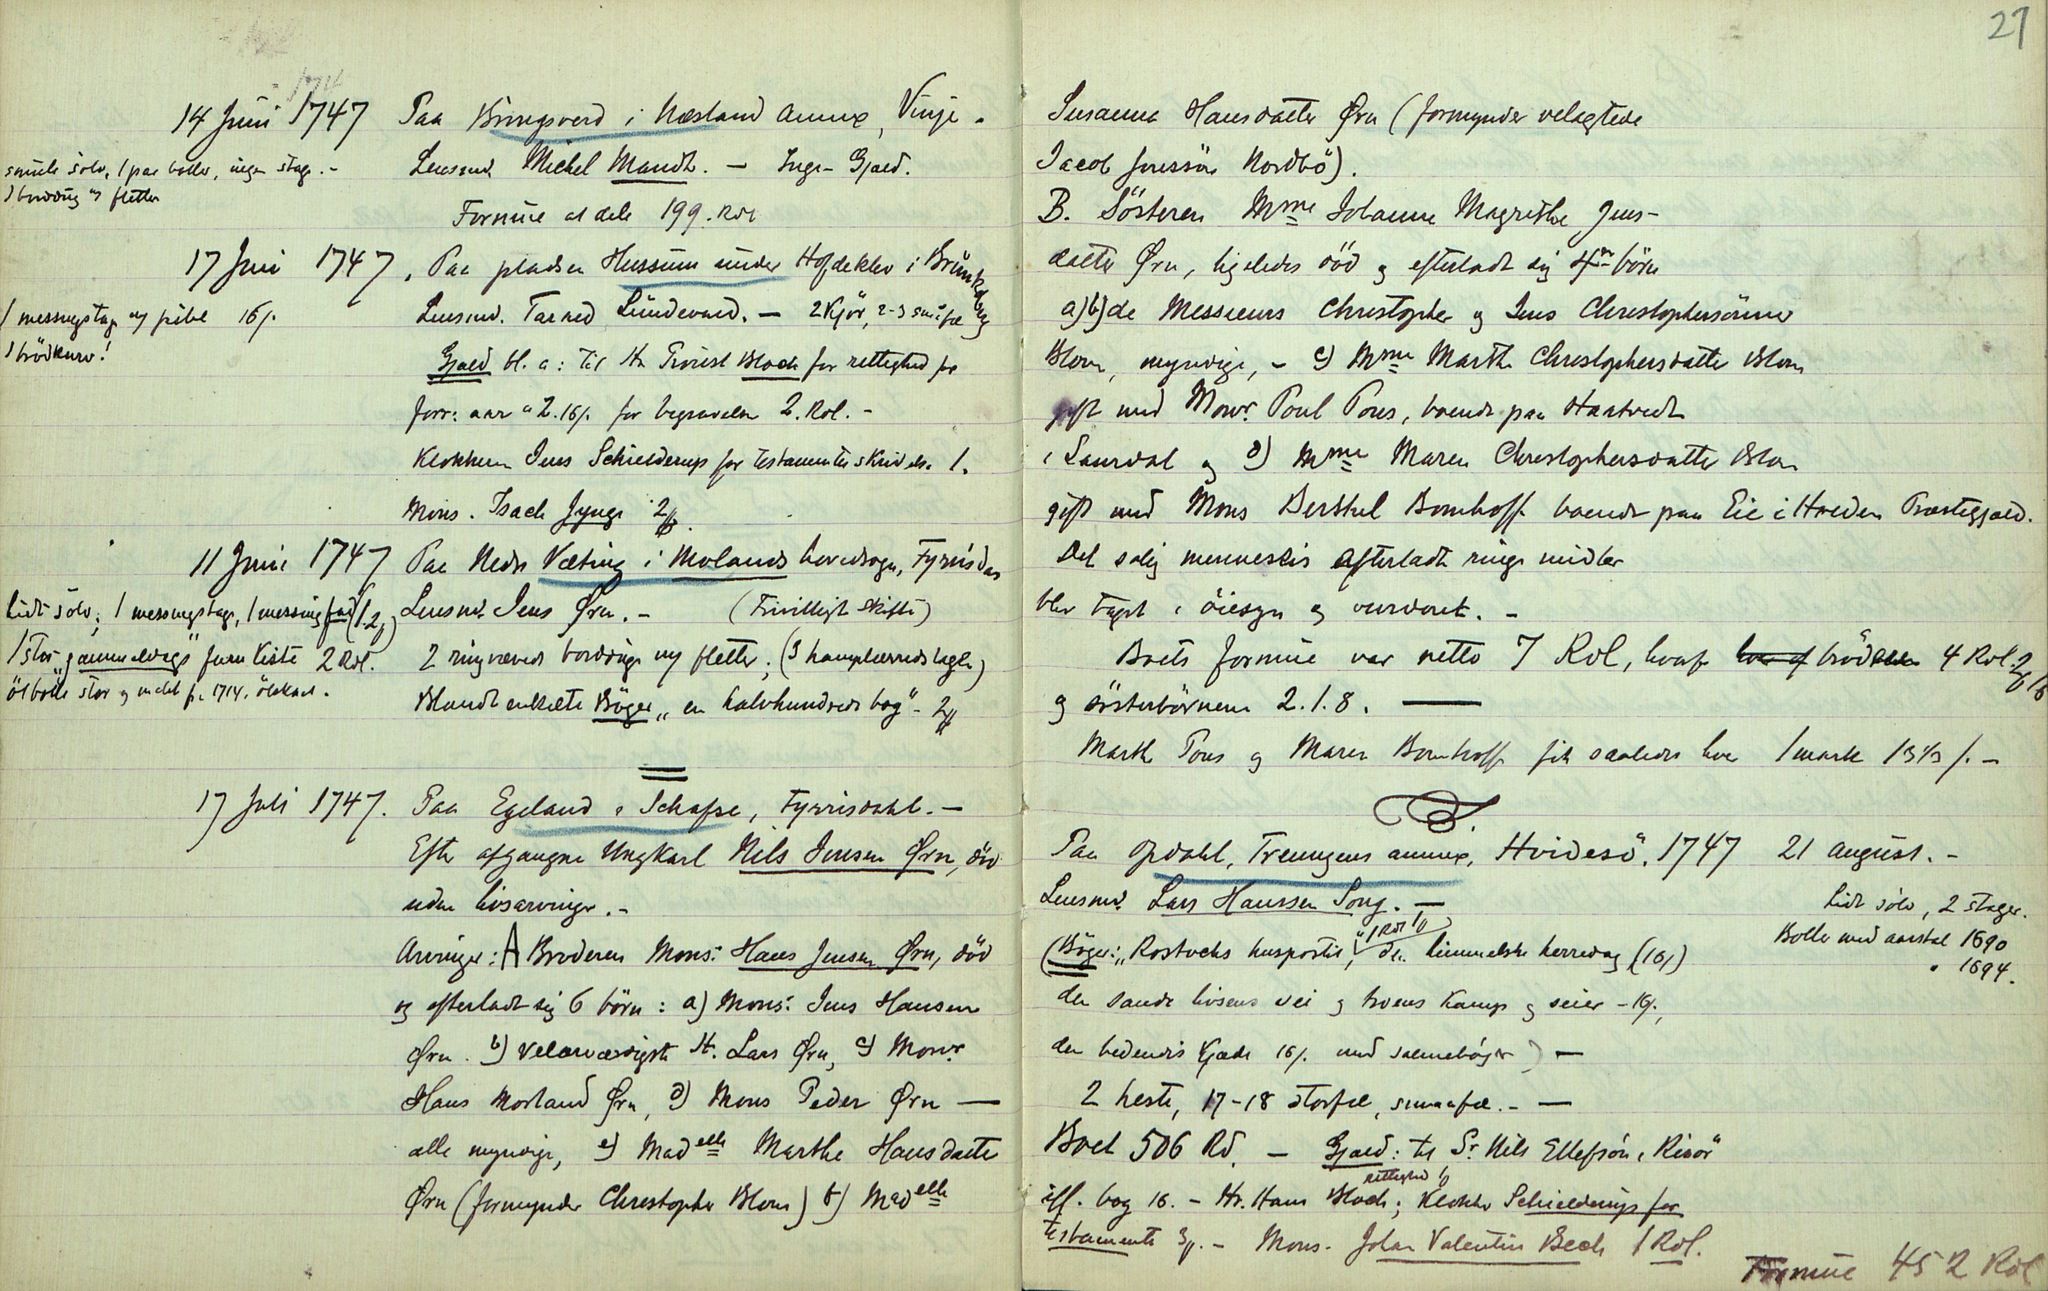 27
14 Juni 1747 Paa Bringsverd i Næsland annex, Vinje.
smule sølv, 1 par boller, ingen stage. -
1 borddug og fletter
Lensmd. Michel Mandt. — Inge Gjæld.
Formue at dele 199. Rdl
17 Juni 1747, Paa pladsen Hussum under Hofdeklev i Brunkeberg
1 messingstage og pibe 16 s.
1 brödkurv!
Lensmd. Taraed Lundevard. — 2 Kjör, 2-3 småfæ
Gjæld bl. a: til Hr Provst Bloch for rettighed for
forr: aar " 2. 16 s. for begravelse 2. Rdl. -
Klokkeren Jens Schielderup for testamentes skrivelse 1.
Mons. Isach Jyngi
11 Juni 1747 Paa Nedre Væting i Molands hovedsogn, Fyrrisdal
Lidt sölv; 1 messingstage, 1 messing fad
1 stor "gammeldags" furu Kiste 2 Rdl.
ölbolle stor og malet fr. 1714, ölskaal.
Lensmd. Jens Ørn. — (Frivilligt skifte)
2 ringvæveds bordduge og fletter; (3 hamplærreds lagler)
Blandt enkelte Böger "en halvhundreds bog" -
17 Juli 1747. Paa Egeland i Schafse, Fyrrisdahl. —
Efter afgangne Ungkarl Nils Jensen Ørn, död
uden livsarvinger. -
Arvinger: A Broderen Mons: Hans Jensen Ørn, död
og efterladt sig 6 börn: a) Mons: Jens Hansen
Ørn. b) Velærværdigste Hr. Lars Ørn, c) Monsr.
Hans Morland Ørn, d) Mons Peder Ørn —
alle myndige, e) Madelle Marthe Hansdatter
Ørn (formynder Christopher Blom) f) Madelle
Susanna Hansdatter Ørn (formynder velagtede
Jacob Jenssön Nordbö).
B. Sösteren Mme Johanne Magrethe Jens-
datter Ørn, ligeledes död og efterladt sig 4re börn
a) b) de Messieurs Christopher og Jens Christophersönner
Blom, myndige, - c) Mme Marthe Christophersdatter Blom
gift med Monsr. Poul Pous, boende paa Haatvedt
i Laurdal og d) Mme Maren Christophersdatter Blom
gift med Mons Berthel Bomhoff boende paa Eie i Hvedens Præstegjæld.
Det salig menneskes efterladte ringe midler
blev taget i öiesyn og vurderet. -
Boets formue var netto 7 Rdl, hvoraf brödrene 4 Rdl.
og sösterbörnene 2. 1. 8. —
Marthe Pous og Maren Bomhoff fik saaledes hver 1 mark 13 1/3 s. -
Paa Opdahl, Treungens annex, Hvidesö. 1747 21 august. -
Lensmd. Lars Hanssen Song. —
Lidt sölv, 2 stager.
Boller med aarstal 1690
" 1694.
(Böger: "Rostochs huspostil," 1 Rdl den himmelske herredag (16 s)
den sande livsens vei og troens Kamp og seier - 16 s.,
den bedendis Kjæde 16 s. med salmebøger) —
2 heste, 17-18 storfæ, småfæ. - —
Boet 506 Rd. — Gjæld: til Sr. Nils Ellefsön, Risör
ifl. bog 16. - Hr. Hans Bloch rettighed; Klokker Schielderup for
testamente 3 - Mons. Johan Valentin Bech 1 Rdl.
Formue 452 Rdl